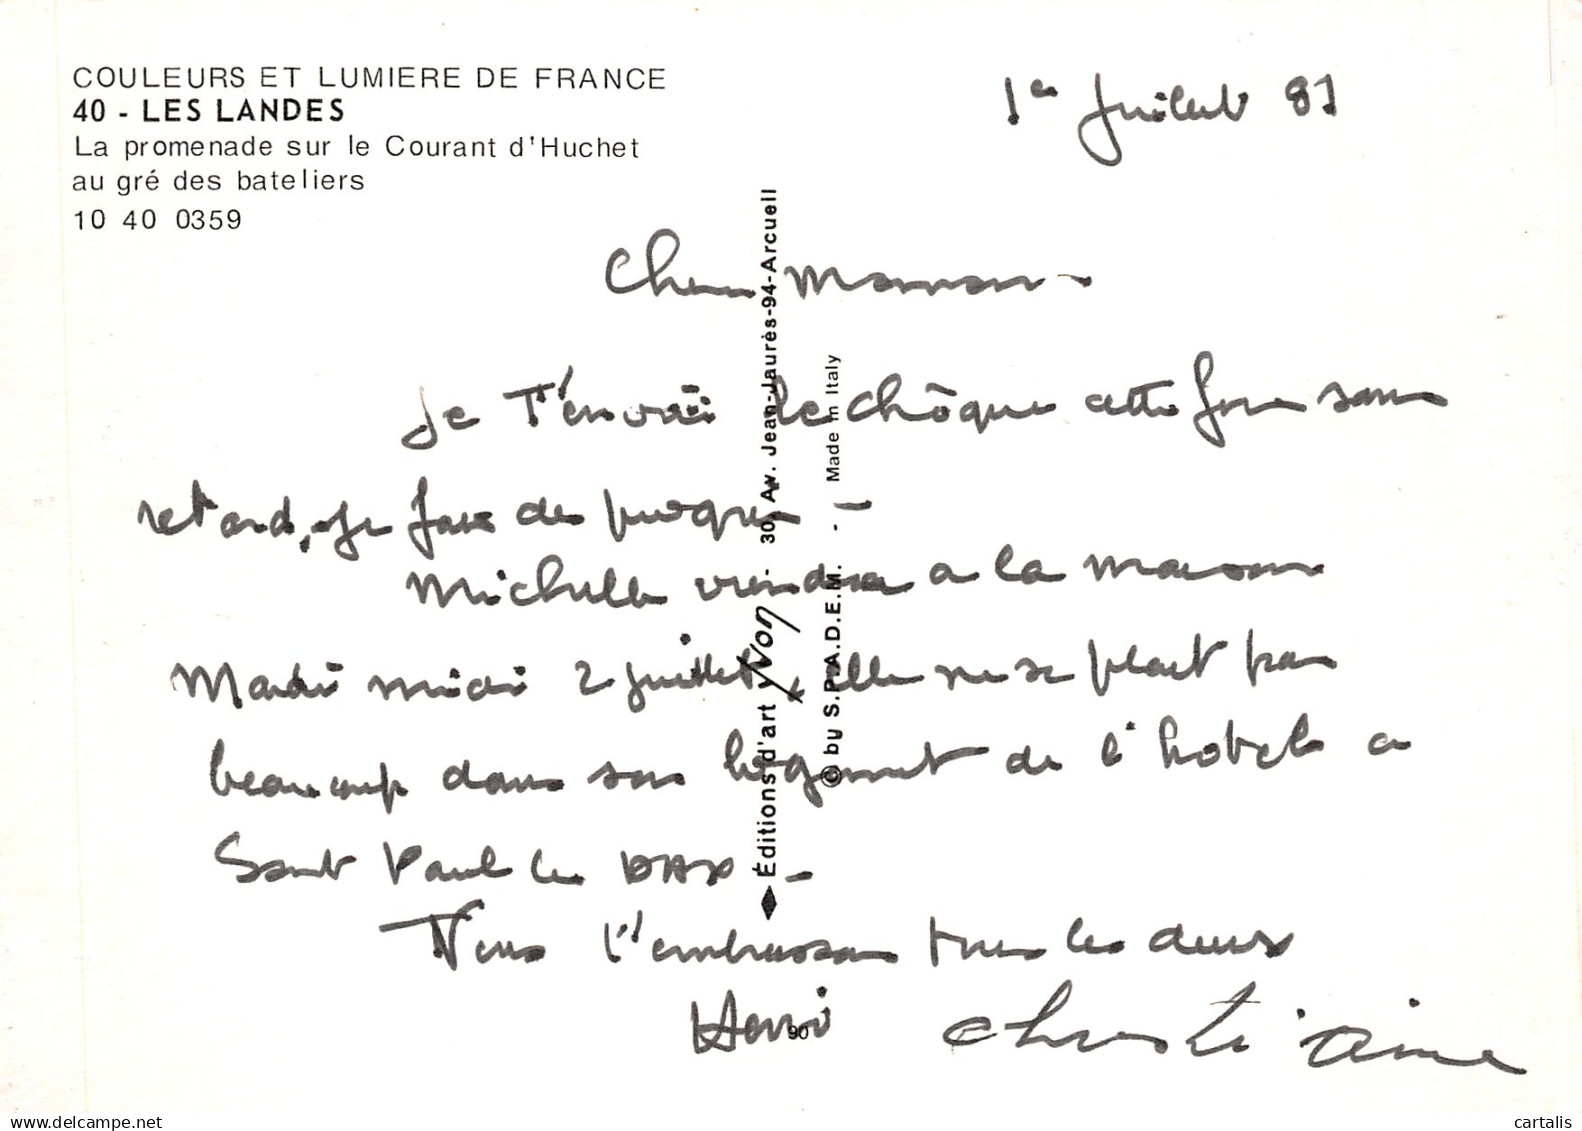 COULEURS ET LUMIERE DE FRANCE
40 - LES LANDES
La promenade sur le Courant d'Huchet
au gré des bateliers
10 40 0359
1er Juillet 81
Chere Maman -
Je T'envoie le chèque cette fois sans
retard, Je fais des progrès -
Michelle viendra a la maison
Mardi midi 2 juillet, elle ne se plait pas
beaucoup dans son logement de l'hotel a
Saint Paul les DAX -
Nous t'embrassons tous les deux
Henri Christiane
Éditions d'art Yvon - 30, Av. Jean-Jaurès-94-Arcueil
© by S.P.A.D.E.M. - Made in Italy
90
cartalis
www.delcampe.net